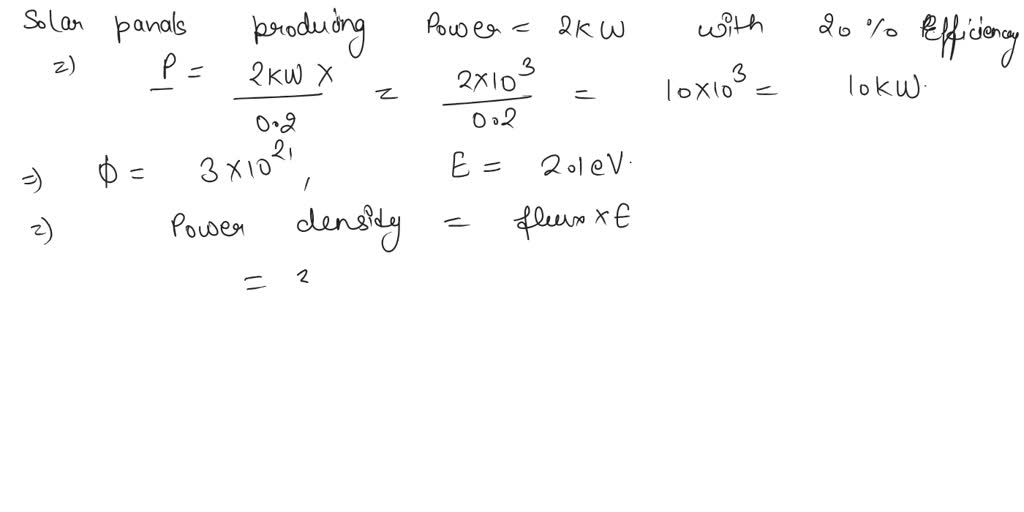 Solar panals produing Power = 2KW with 20% Efficiency
=) P = 2KW X / 0.2 = 2×10³ / 0.2 = 10×10³ = 10KW.
=) ϕ = 3×10²¹, E = 2.1eV.
=) Power density = flux × E
= 3